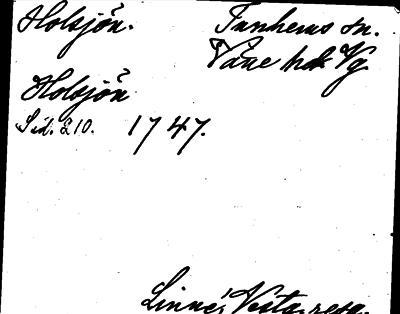 Holsjön. Tunhems sn.
Väne hd. Vg.
Holsjön
Sid. 210. 1747.
Linné, Västg. resa.